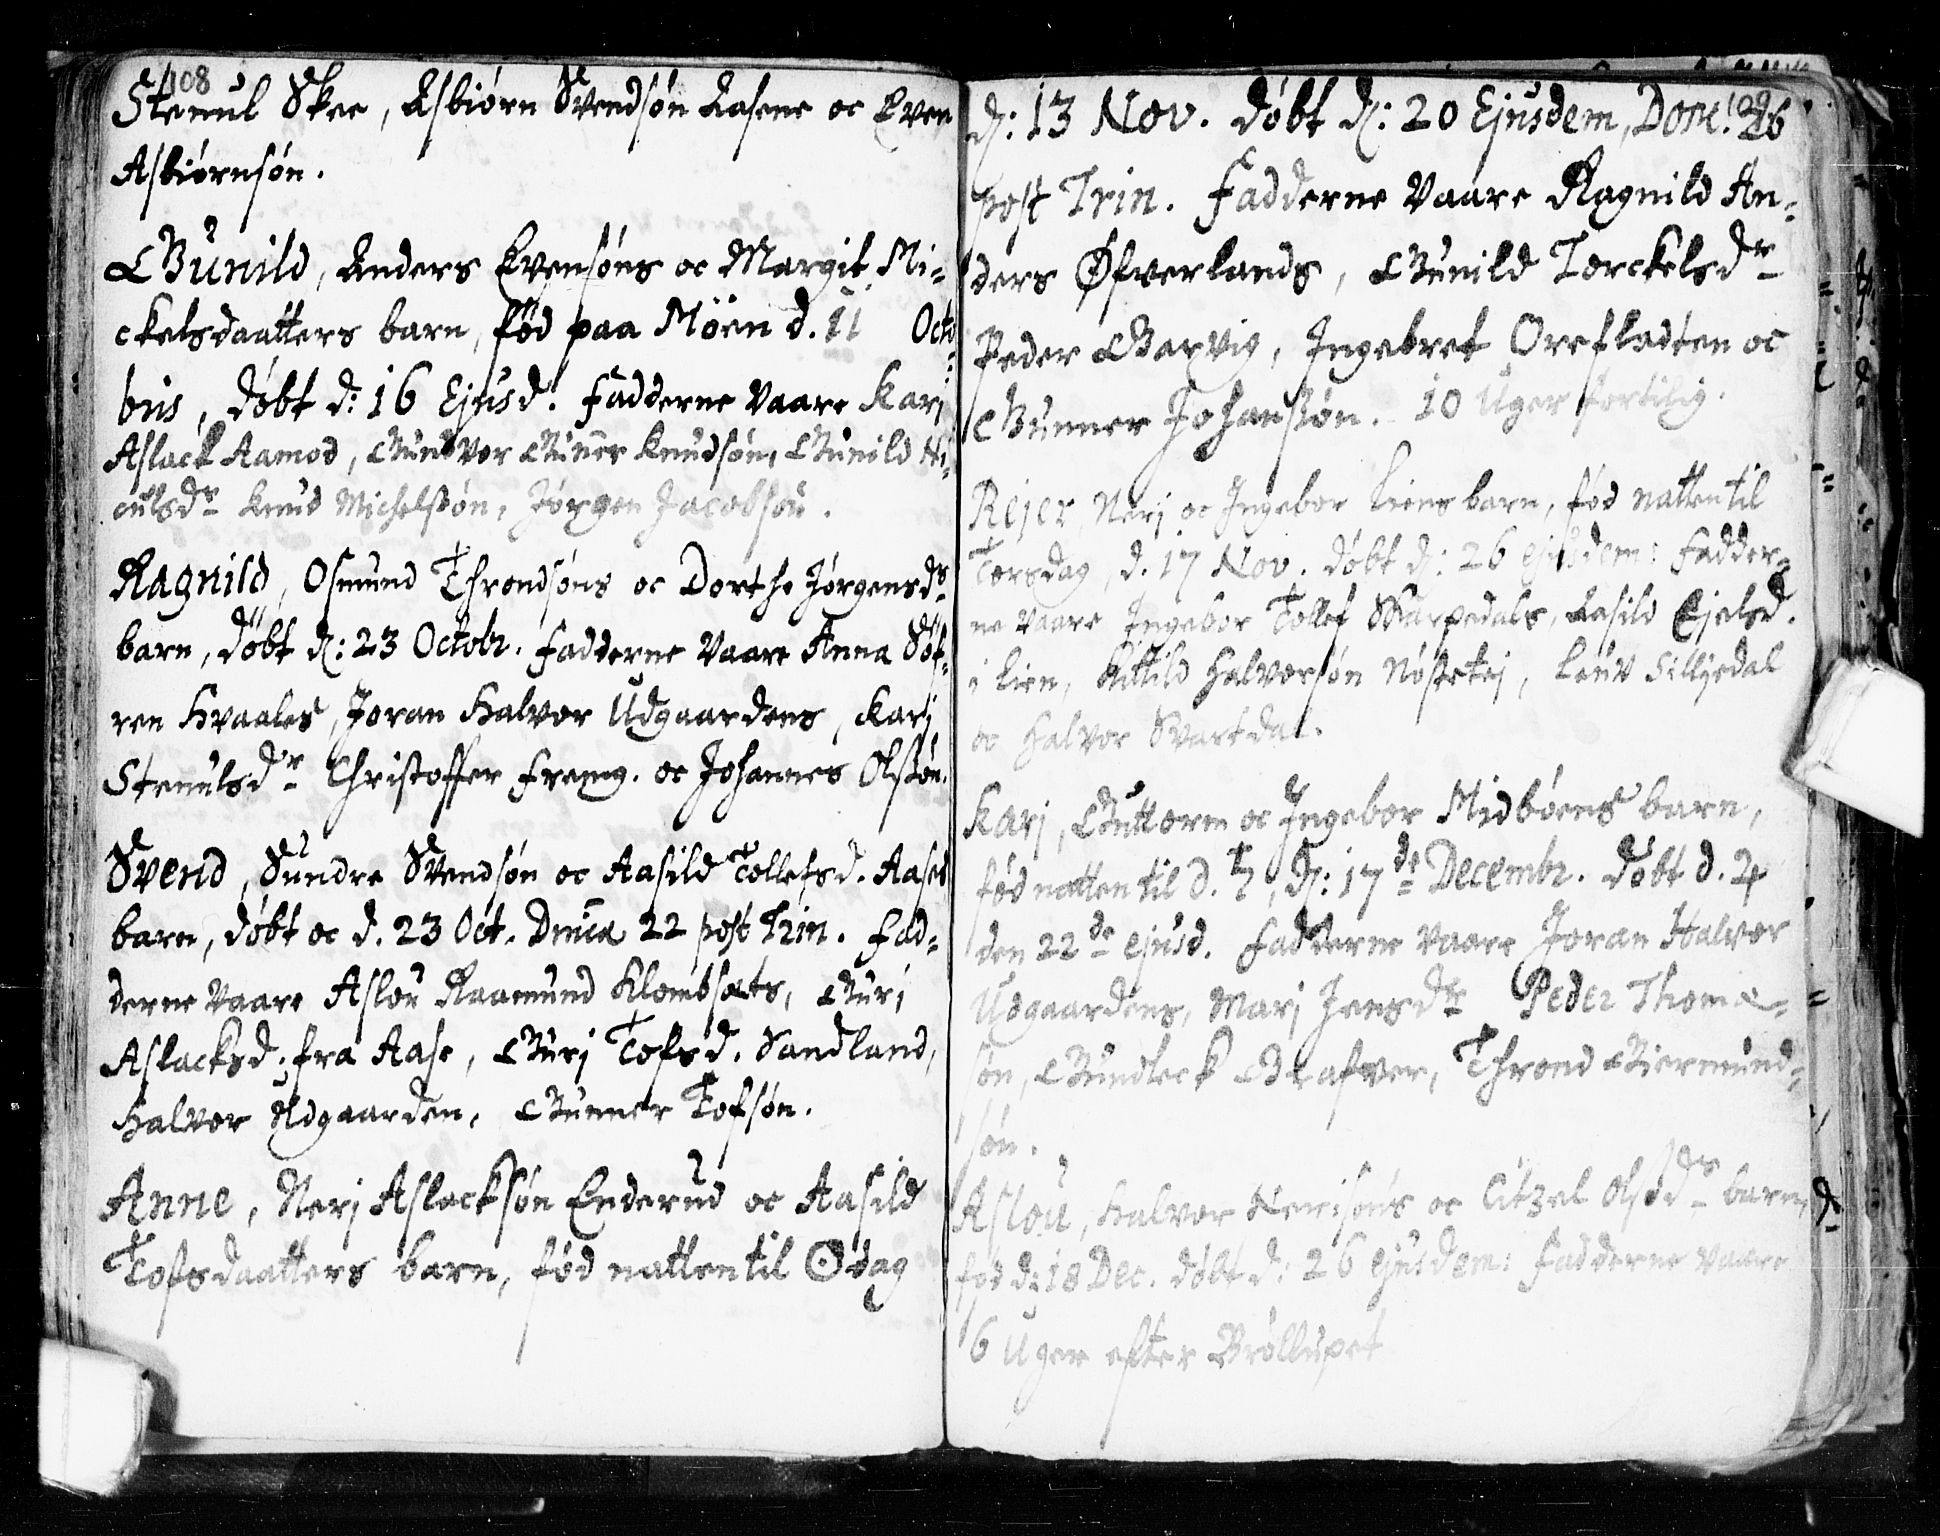 108
Stenul Skee, Asbiørn Svendsøn Aasene oc Even
Asbiørnsøn.
Gunild, Anders Evensøns oc Margit Mi-
ckelsdaatters barn, fød paa Möen d. 11 Octo-
bris, døbt d: 16 Ejusd. Fadderne vaare Karj
Aslack Aamod, Gunvor Guner Knudsøn, Gunild Ni-
culsdr Knud Michelsøn, Jørgen Jacobsøn.
Ragnild, Osmund Throndsøns oc Dorthe Jørgensdr
barn, døbt d: 23 Octobr. Fadderne vaare Anna Søf-
ren Hvaales, Joran Halvor Udgaardens, Karj
Stenulsdr Christoffer Fremg. oc Johannes Olsøn.
Svend, Sundre Svendsøn oc Aasild Tollefsd. Aases
barn, døbt oc d. 23 Oct. Dnica 22 post Trin. Fad-
derne vaare Aslou Raamund Klombsæts, Gurj
Aslacksd. fra Aase, Gurj Tofsd. Sandland,
Halvor Udgaarden, Gunner Tofsøn.
Anne, Nerj Aslacksøn Enderud oc Aasild
Tofsdaatters barn, fød natten til ☉dag
109
d: 13 Nov. døbt d: 20 Ejusdem, Dom. 26
post Trin. Fadderne vaare Ragnild An-
ders Øfverlands, Gunild Torckelsdr
Peder Garvig, Ingebret Orefladten oc
Gunner Johansøn. 10 Uger fortilig.
Rejer, Nerj oc Ingebor Liens barn, fød natten til
Torsdag, d. 17 Nov. døbt d: 26 ejusdem: Fadder-
ne vaare Ingebor Tollef Skarpedals, Aasild Ejelsd.
i Lien, Kittild Halvorsøn Nøstetej, Leuv Silljedal
oc Halvor Svartdal.
Karj, Guttorm oc Ingebor Midbøens barn,
fød natten til d. ♄, d: 17de Decembr. Døbt d. ♃
den 22de ejusd. Fadderne vaare Joran Halvor
Udgaardens, Marj Jensdr Peder Thome-
søn, Gundleck Grafver, Thrond Giermund-
søn.
Aslou, Halvor Nerisøns oc Citzel Olsdr barn,
fød d: 18 Dec. døbt d: 26 ejusdem: Fadderne vaare
6 Uger efter Brøllupet